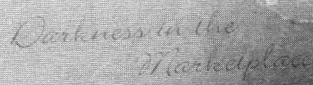 Darkness in the
Marketplace